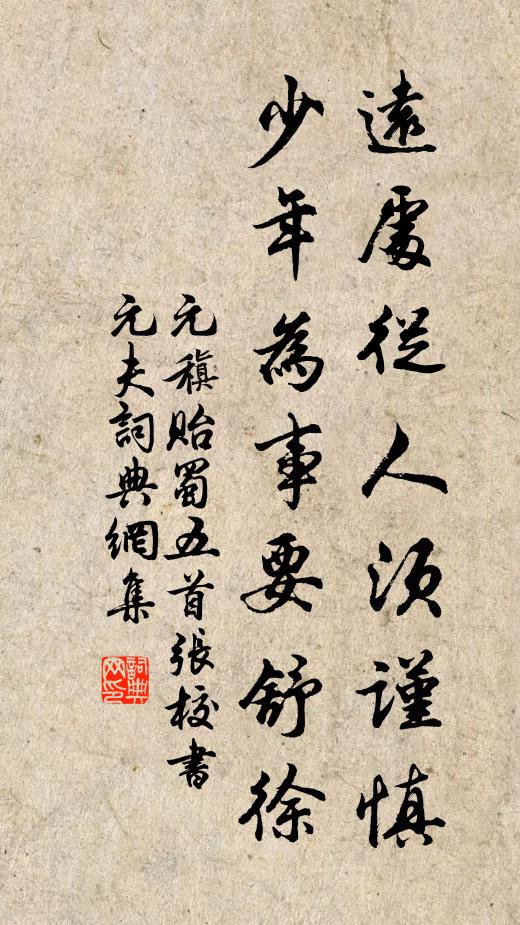 遠處從人須謹慎
少年為事要舒徐
元稹貽蜀五首張校書
元夫詞典網集
詞典网印